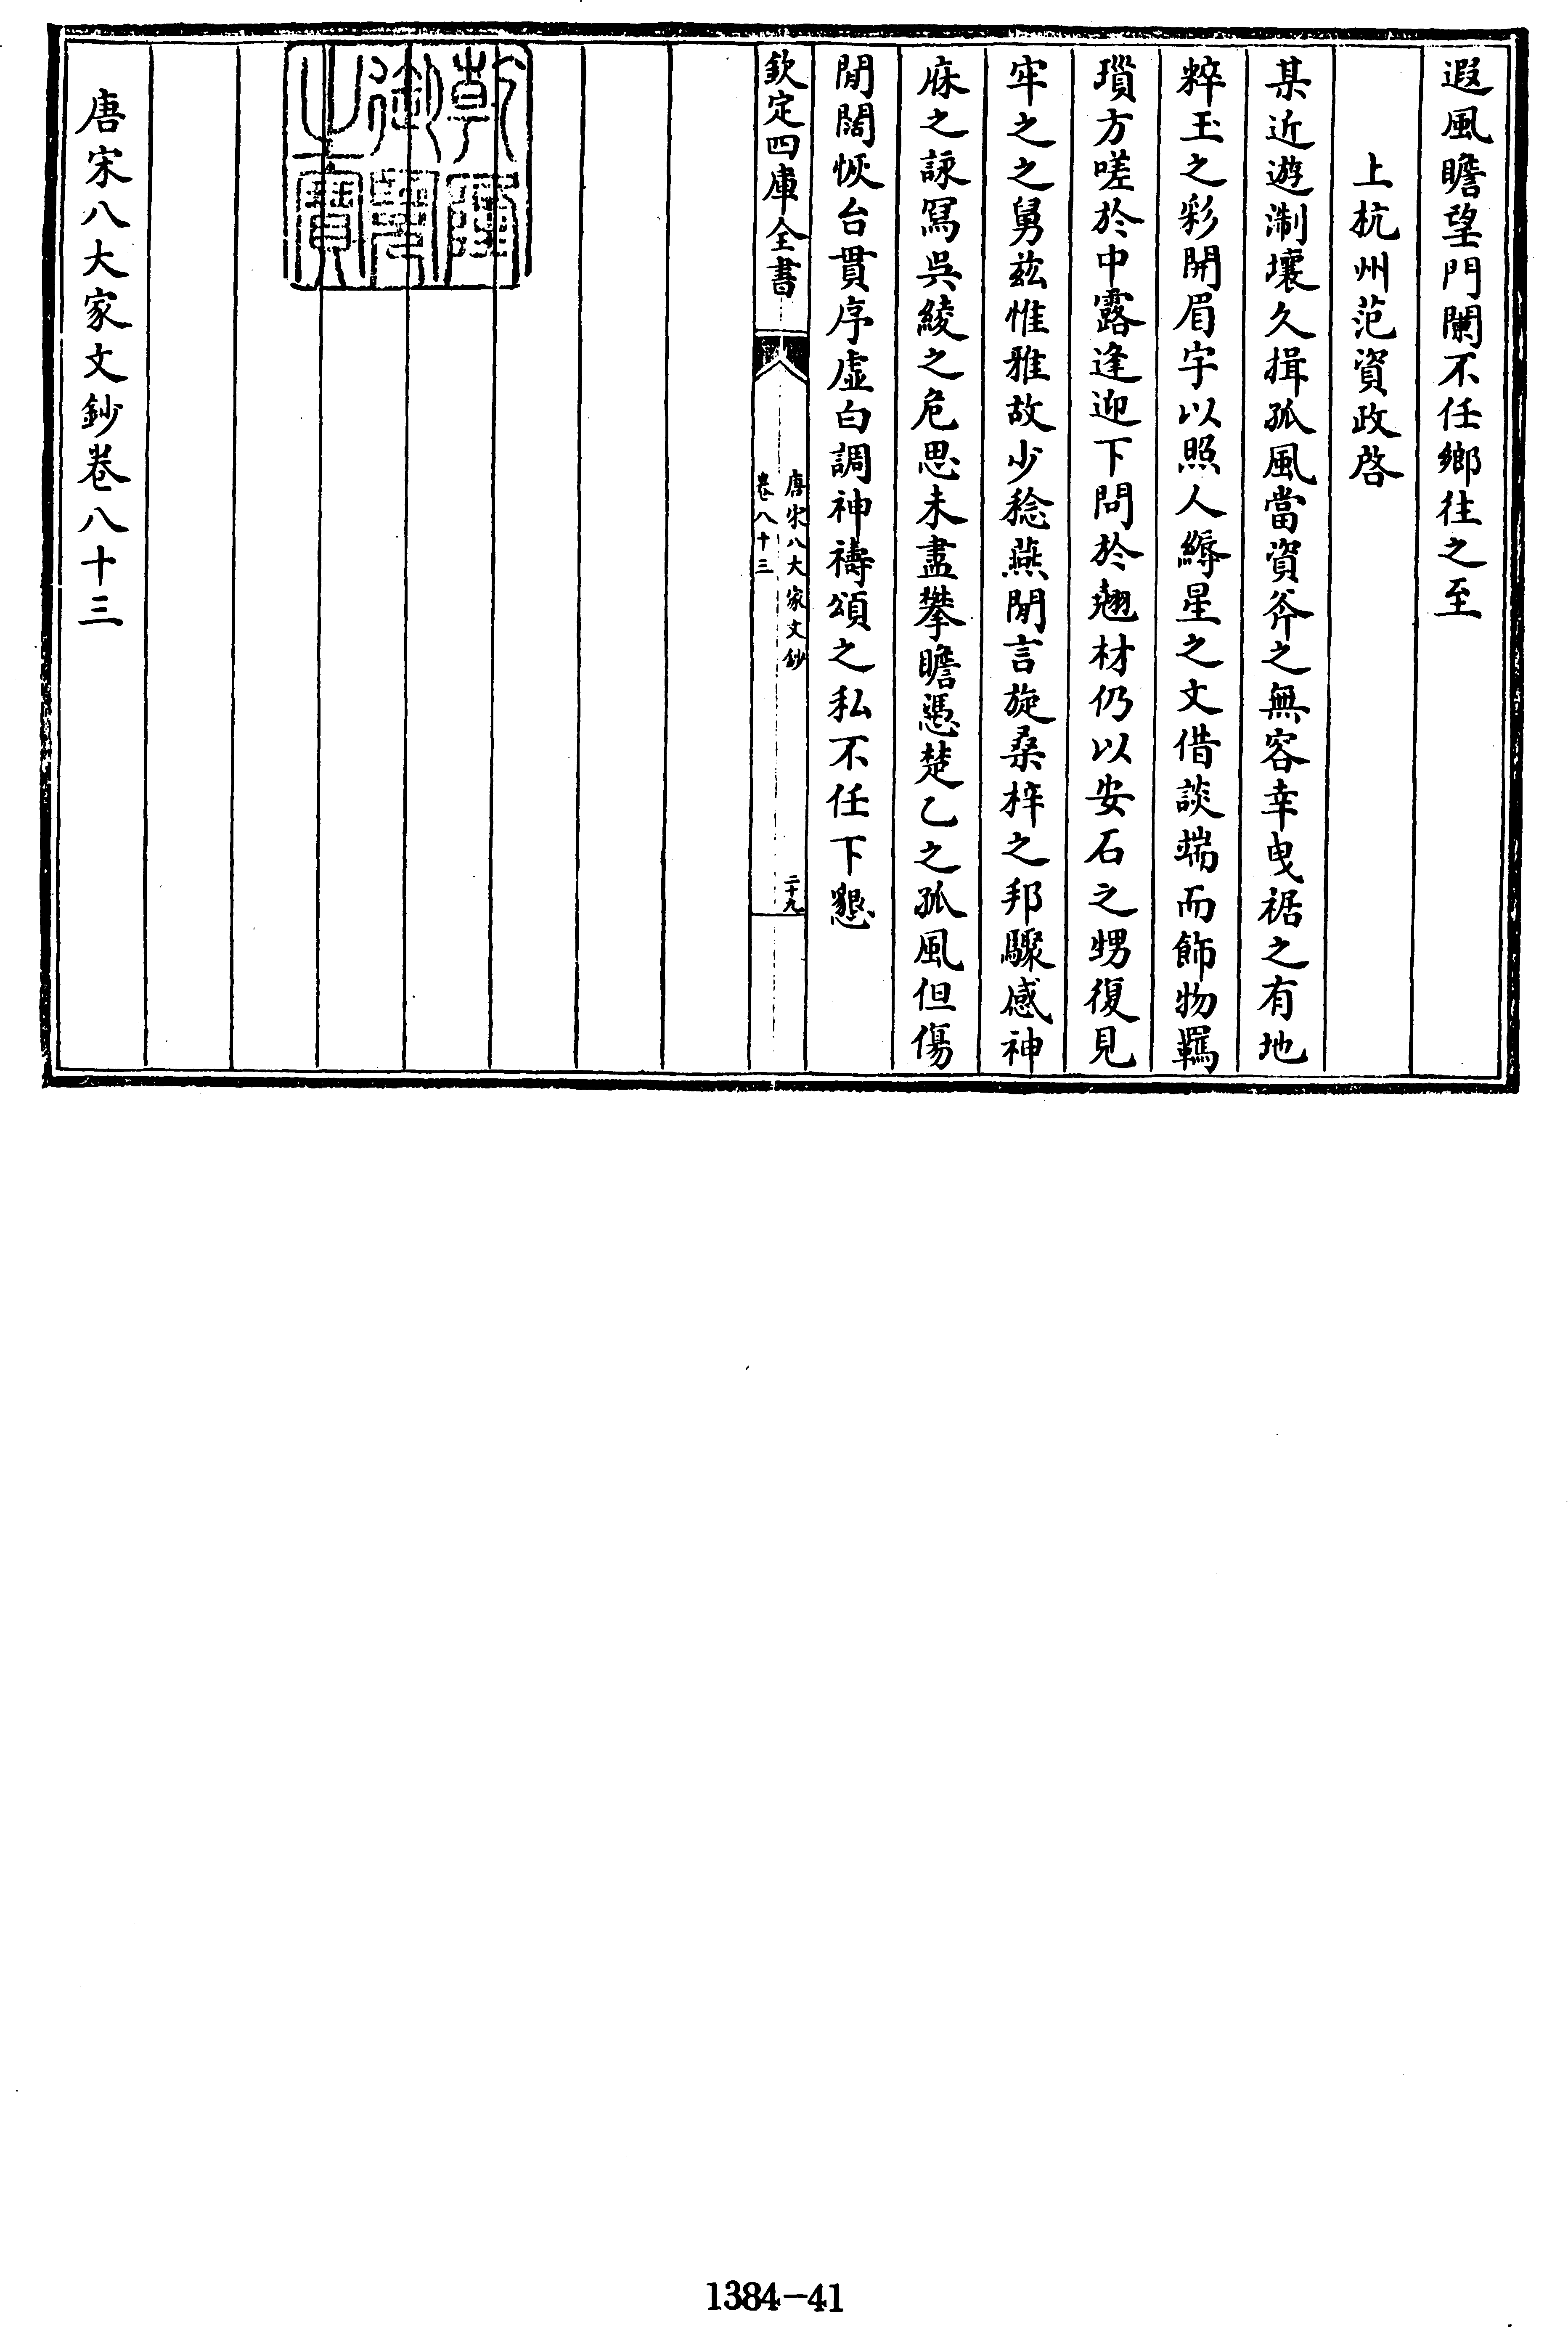 遐風瞻望門闌不任鄉往之至
上杭州范資政啓
某近遊淛壤久揖孤風當資斧之無容幸曳裾之有地
粹玉之彩開眉宇以照人縟星之文借談端而飾物羈
瑣方嗟於中露逢迎下問於翹材仍以安石之甥復見
牢之之舅茲惟雅故少稔燕閒言旋桑梓之邦驟感神
庥之詠冩吳綾之危思未盡攀瞻憑楚乙之孤風但傷
間闊恢台貫序虛白調神禱頌之私不任下懇
欽定四庫全書
唐宋八大家文鈔
卷八十三
二十九
乾隆御覽之寶
唐宋八大家文鈔卷八十三
1384-41